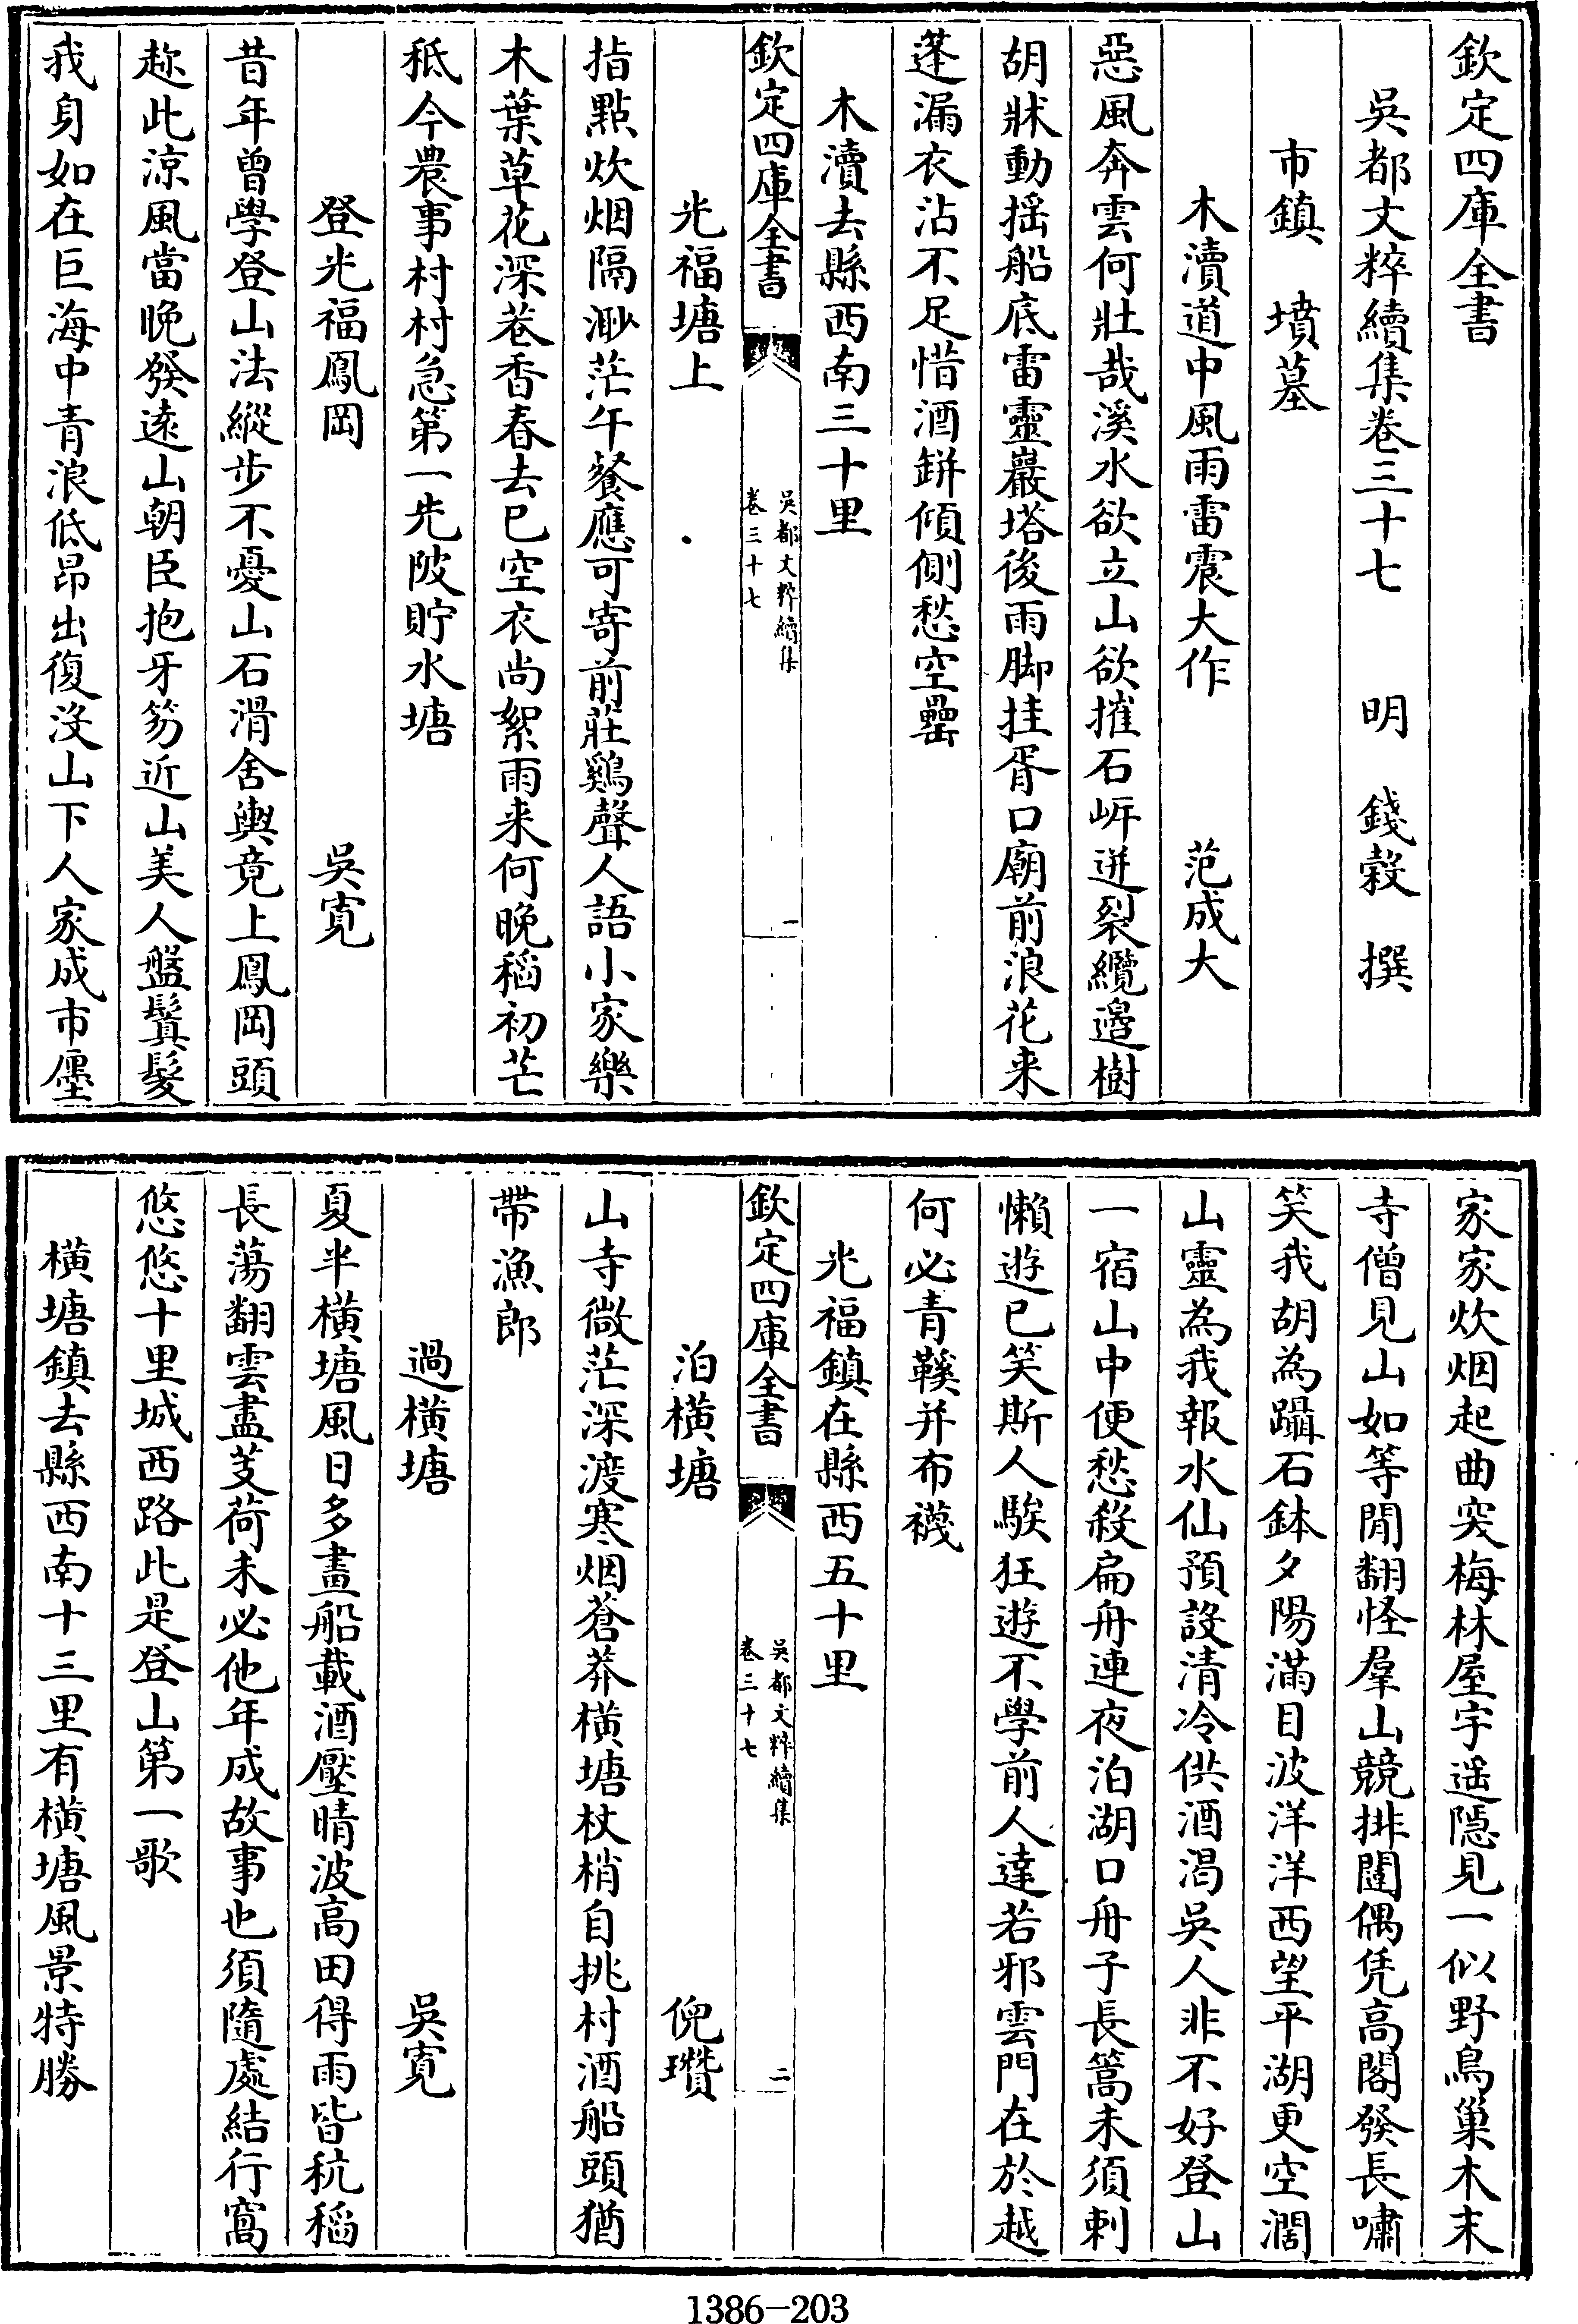 欽定四庫全書
吳都文粹續集卷三十七　明　錢榖　撰
市鎮　墳墓
木瀆道中風雨雷震大作　范成大
惡風奔雲何壯哉溪水欲立山欲摧石岸迸裂纜邊樹
胡牀動揺船底雷靈巖塔後雨脚挂胥口廟前浪花来
蓬漏衣沾不足惜酒缾傾側愁空罍
木瀆去縣西南三十里
欽定四庫全書
吳都文粹續集
卷三十七
一
光福塘上
指點炊烟隔渺茫午餐應可寄前莊鷄聲人語小家樂
木葉草花深巷香春去已空衣尚絮雨来何晚稻初芒
秪今農事村村急第一先陂貯水塘
登光福鳳岡　吳寛
昔年曾學登山法縱步不憂山石滑舍輿竟上鳳岡頭
趂此凉風當晩發逺山朝臣抱牙笏近山美人盤鬒髮
我身如在巨海中青浪低昂出復沒山下人家成市㕓
家家炊烟起曲突梅林屋宇遥隠見一似野鳥巢木末
寺僧見山如等閒翻怪羣山競排闥偶凭高閣發長嘯
笑我胡為躡石鉢夕陽滿目波洋洋西望平湖更空濶
山靈為我報水仙預設清冷供酒渴吳人非不好登山
一宿山中便愁殺扁舟連夜泊湖口舟子長篙未須刺
懶遊已笑斯人騃狂遊不學前人達若邪雲門在於越
何必青鞵并布襪
光福鎮在縣西五十里
欽定四庫全書
吳都文粹續集
卷三十七
二
泊横塘　倪瓚
山寺微茫深渡寒烟蒼莽横塘杖梢自挑村酒船頭猶
帶漁郎
過横塘　吳寛
夏半横塘風日多畫船載酒壓晴波高田得雨皆秔稻
長蕩翻雲盡芰荷未必他年成故事也須隨處結行窩
悠悠十里城西路此是登山第一歌
横塘鎮去縣西南十三里有横塘風景特勝
1386-203